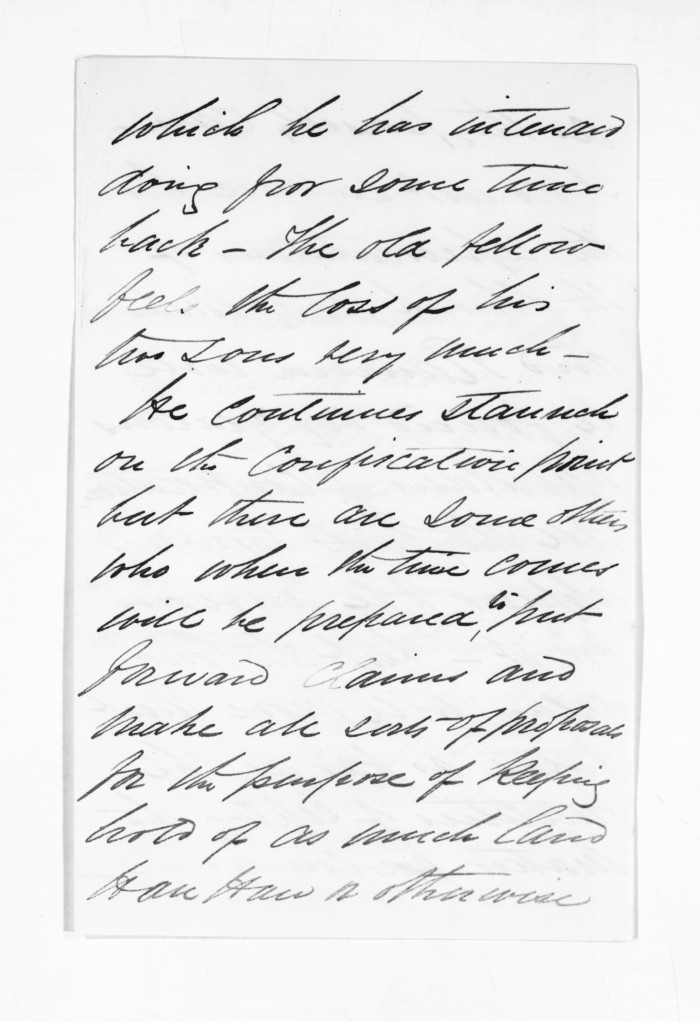 which he has intended
doing for some time
back – The old fellow
feels the loss of his
two sons very much –
He continues staunch
on the Confiscation point
but there are some others
who when the time comes
will be prepared, to put
forward claims and
make all sorts of proposals
for the purpose of keeping
hold of as much land
Hau Hau or otherwise